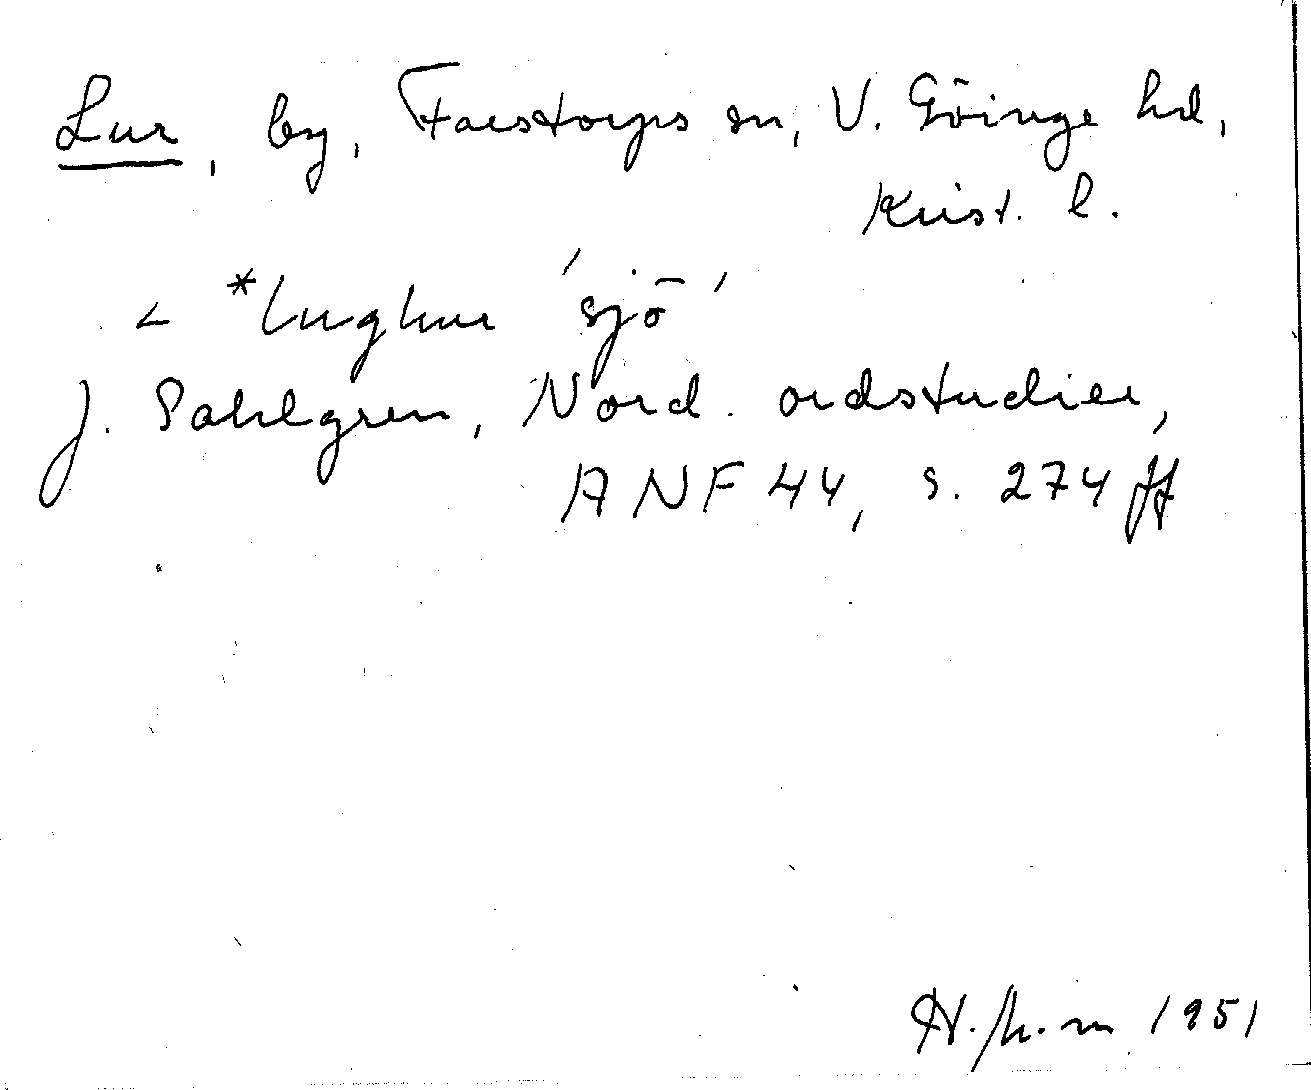 Lur, by, Farstorps sn, V. Göinge hd,
Krist. l.
< *lughur 'sjö'
J. Sahlgren, Nord. ordstudier,
ANF 44, s. 274 ff
1951